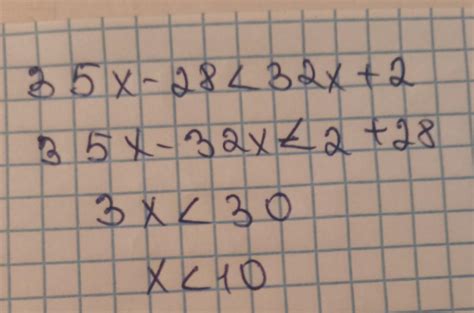 35x-28<32x+2
35x-32x<2+28
3x<30
x<10